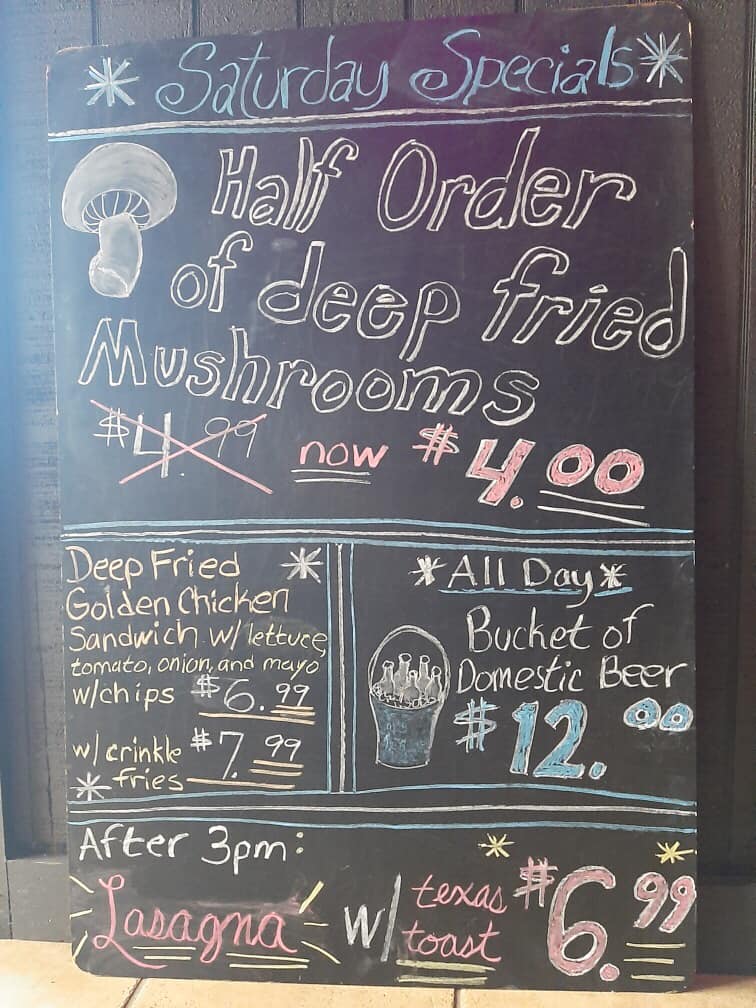 Saturday Specials
Half Order
of deep fried
Mushrooms
$4.99 now $4.00
Deep Fried
Golden Chicken
Sandwich w/ lettuce,
tomato, onion, and mayo
w/chips $6.99
w/ crinkle $7.99
fries
All Day
Bucket of
Domestic Beer
$12.00
After 3pm:
Lasagna w/ texas toast $6.99